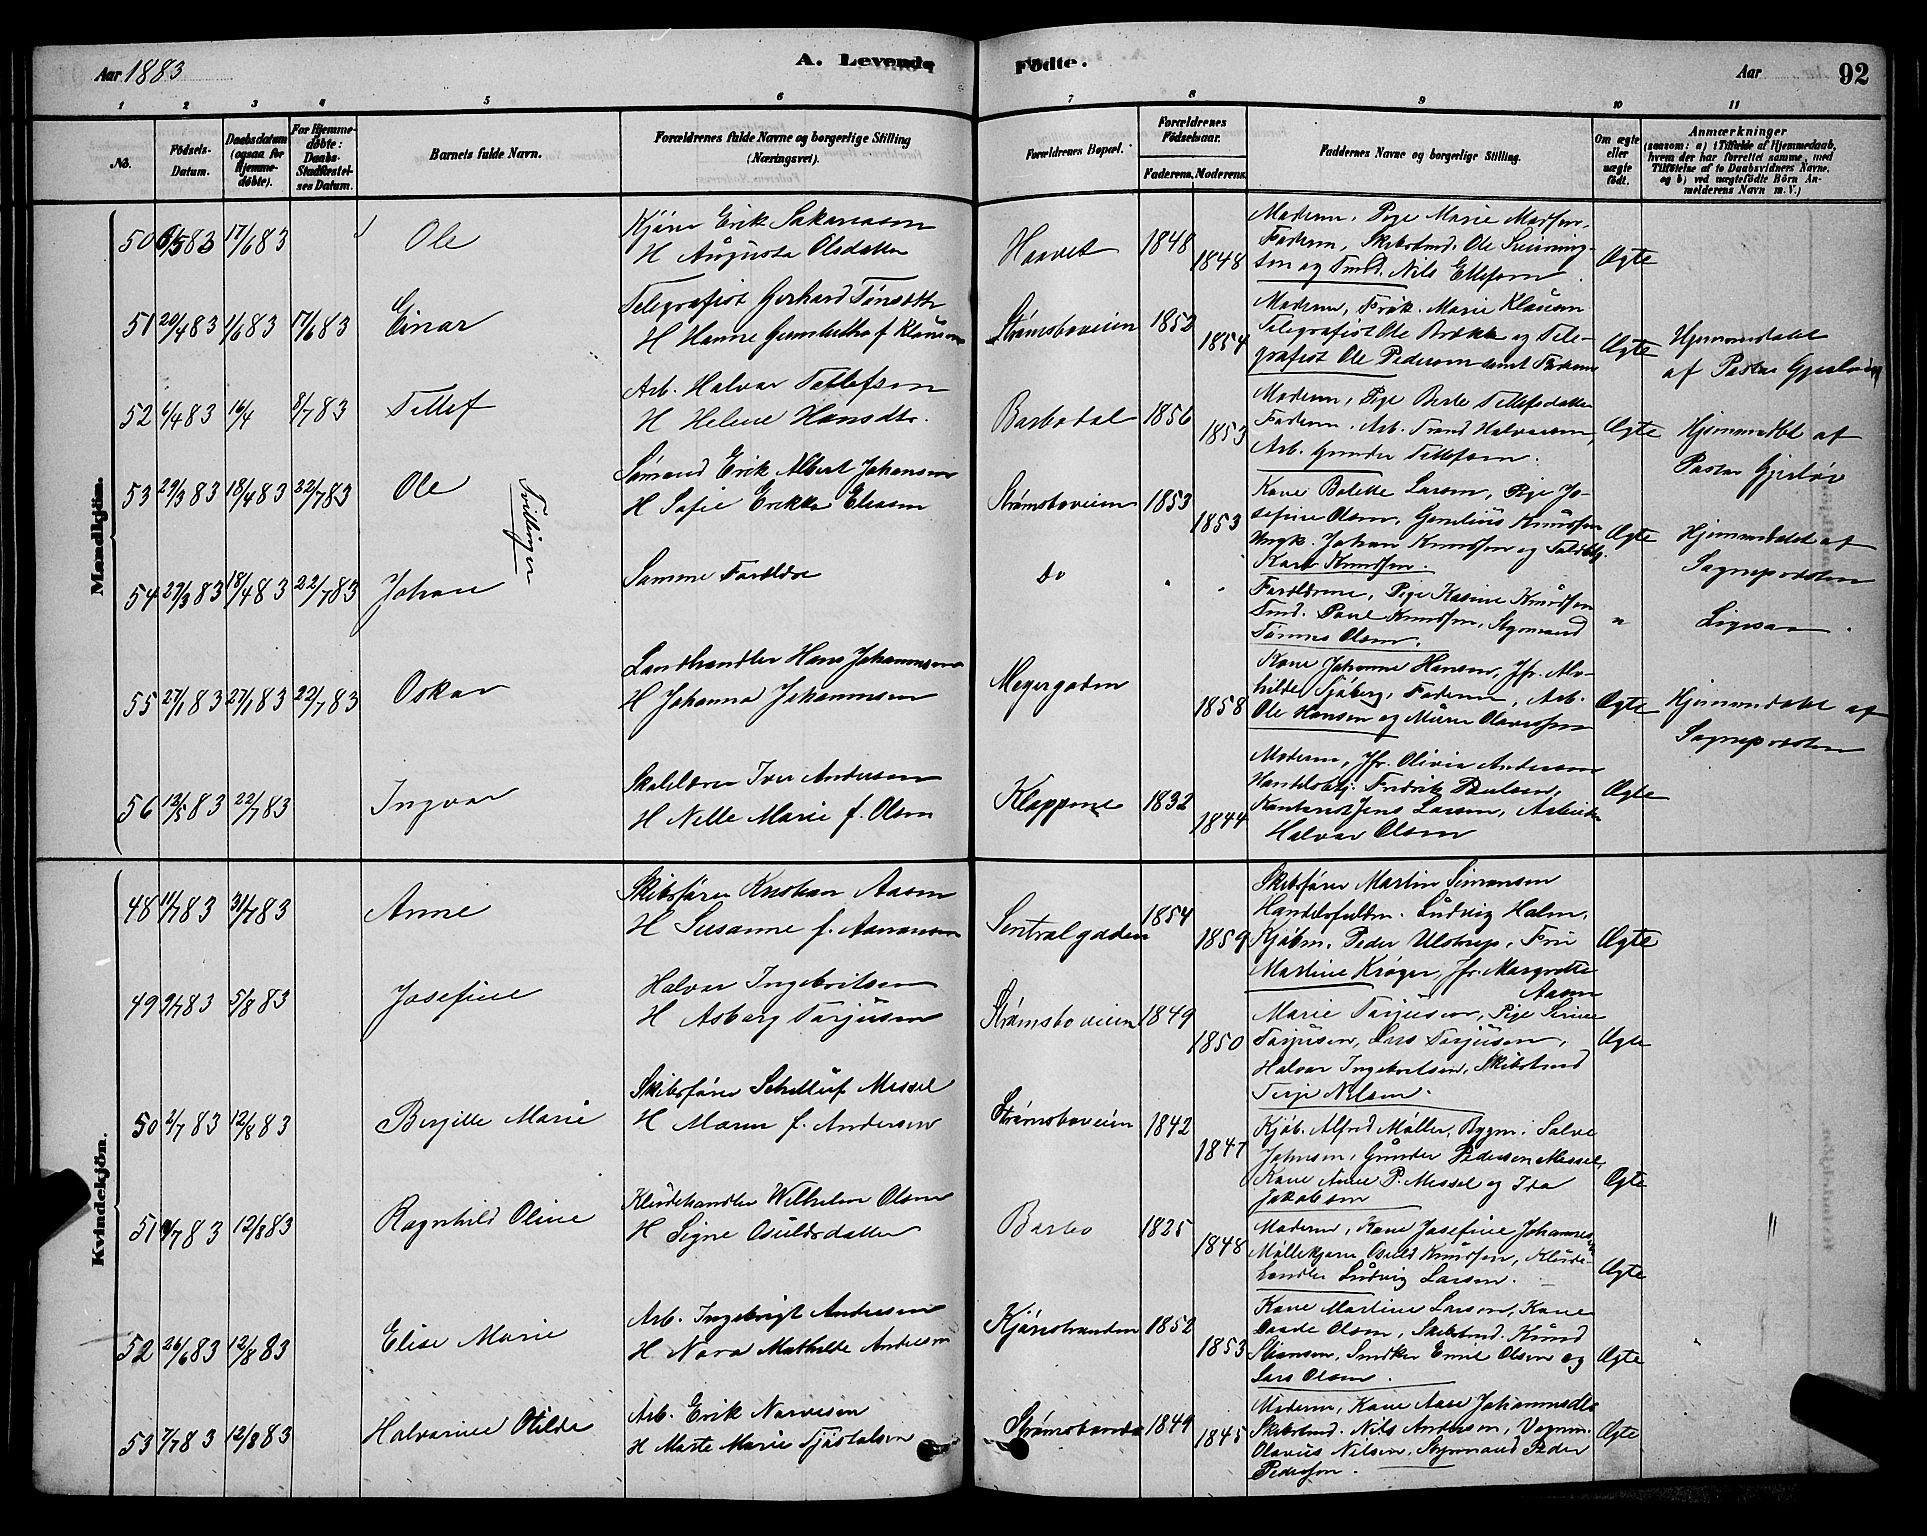 Aar 1883
A. Levende Fødte.
Aar
92
1 2 3 4 5 6 7 8 9 10 11
No.
Fødsels-Datum.
Daabsdatum (ogsaa for Hjemmedøbte).
For Hjemmedøbte: Daabs-Stadfæstelses Datum.
Barnets fulde Navn.
Forældrenes fulde Navne og borgerlige Stilling (Næringsvei).
Forældrenes Bopæl.
Forældrenes Fødselsaar.
Faderens. Moderens.
Faddernes Navne og borgerlige Stilling.
Om ægte eller uægte født.
Anmærkninger (saasom: a) i Tilfælde af Hjemmedaab, hvem der har forrettet samme, med Tilføielse af to Daabsvidners Navne, og b) ved uægtefødte Børn Anmelderens Navn m. V.)
Mandkjøn.
50 6/5 83 17/6 83 Ole
Kjører Erik Sakariasen
H Augusta Olsdatter
Haavet 1848 1848
Moderen, Pige Marie Madsen,
Faderen, Skibstmd. Ole
sen og Tmd. Nils Ellefsen
Ægte
51 20/4 83 1/6 83 17/6 83 Einar
Telegrafist Gerhard Tønseth
H Hanne f. Klausen
Strømsboveien 1852 1854
Moderen, Frøk. Marie Klausen
Telegrafist Ole Brekke og Tele-
grafist Ole Pedersen samt Faderen
Ægte
Hjemmedøbt
af Pastor Gjerløw
52 6/4 83 16/4 8/7 83 Tellef
Arb. Halvor Tellefsen
H Helene Hansdtr.
Barbodal 1856 1853
Moderen, Pige Berte Tellefsdatter
Faderen, Arb. Trond Halvorsen,
Arb. Gunder Tellefsen.
Ægte
Hjemmedbt af
Pastor Gjerløv
53 29/3 83 18/4 83 22/7 83 Ole
Tvillinger
Sømand Erik Albert Johansen
H Sofie Erikke Eliasen
Strømsboveien 1853 1853
Kone Bolette Larsen, Pige Jo-
sefine Olsen, Knudsen
Ungk. Johan Knudsen og Toldbtj.
Karl Knudsen.
Ægte
Hjemmedøbt af
Sognepresten
54 29/3 83 18/4 83 22/7 83 Johan
Samme Forældre
Do " "
Forældrene, Pige Kasine Knudsen
Tmd. Paul Knudsen, Styrmand
Tønnes Olsen.
"
Ligesaa.
55 27/1 83 27/1 83 22/7 83 Oskar
Landhandler Hans Johannesen
H Johanna Johannesen
Meyergaden 1858
Kone Johanne Hansen, Jfr. Alv-
hilde Sjøberg, Faderen, Arb.
Ole Hansen og Murer Olavesen
Ægte
Hjemmedøbt af
Sogneprosten
56 12/5 83 22/7 83 Ingvar
Skolelærer Iver Andersen
H Nelle Marie f. Olsen
Kloppene 1832 1844
Moderen, Jfr. Olivia Andersen
Handelsbtj. Fredrik Paulsen,
Kontorist Jens Larsen, Arbeider
Halvor Olsen
Ægte
Kvindekjøn.
48 11/7 83 31/7 83 Anne
Skibsfører Kristian Aasen
H Susanne f. Aanonsen
Sentralgaden 1854 1859
Skibsfører Martin Simonsen
Handelsfuldm. Ludvig Holm,
Kjøbm. Peder Ulstrup, Fru
Martine Krøger, Jfr. Margrethe
Aasen
Ægte
49 9/7 83 5/8 83 Josefine
Halvor Ingebritsen
H Asborg Torjusen
Strømsboveien 1849 1850
Marie Torjusen, Pige Sine
Torjusen, Lars Torjusen,
Halvor Ingebritsen, Skibstmd
Terje Nilsen.
Ægte
50 2/7 83 12/8 83 Birgitte Marie
Skibsfører Messel
H Maren f. Andersen
Strømsboveien 1842 1847
Kjøb. Alfred Møller, Bygm. Salve
Johnsen, Gunder Pedersen Messel,
Kone Anne P. Messel og Ida
Jakobsen
Ægte
51 9/7 83 12/8 83 Ragnhild Oline
Kludehandler Wilhelm Olsen
H Signe Osuldsdatter
Barbo 1825 1848
Moderen, Kone Josefine Johannesen
Møllekjører Osuld Knudsen, Klude-
handler Ludvig Larsen.
Ægte
"
52 26/6 83 12/8 83 Elise Marie
Arb. Ingebrigt Andersen
H Nora Mathilde Andersen
Kjørrestranden 1852 1853
Kone Martine Larsen, Kone
Olsen, Skibstmd. Knud
Stiansen, Snedker Emil Olsen og
Lars Olsen.
Ægte
53 7/7 83 12/8 83 Halvarine Otilde
Arb. Erik Narvesen
H Marte Marie Gjøstølsen
1849 1845
Moderen, Kone Aase Johannesdtr
Skibstmd. Nils Andersen, Vognm.
Olavus Nilsen, Styrmand Peder
Pedersen.
Ægte